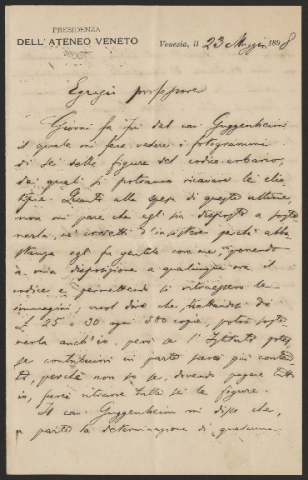 PRESIDENZA
DELL'ATENEO VENETO
Venezia, il 23 Maggio 1898
Egregio professore
Giorni fa fui dal cav. Guggenheim
il quale mi fece vedere i fotogrammi
di sei delle figure del codice urbinate,
dai quali si potranno ricavare le
Quanto alla spesa di queste ultime,
non mi pare che egli sia disposto a soste-
nerla, né credetti d'insistere perché abba-
stanza egli fu gentile con me, ponendo
a mia disposizione a qualunque ora il
codice e permettendo si ritraessero le
immagini; vuol dire che trattandosi di
£ 25 o 30 ogni 500 copie, potrò soste-
nerla anch'io, però se l'Istituto potes-
se contribuirvi in parte sarei più conten-
to, perché non so se, dovendo pagare tutto
io, farei ritrarre tutte sei le figure.
Il cav. Guggenheim mi disse che,
a parte la determinazione di qualcuna